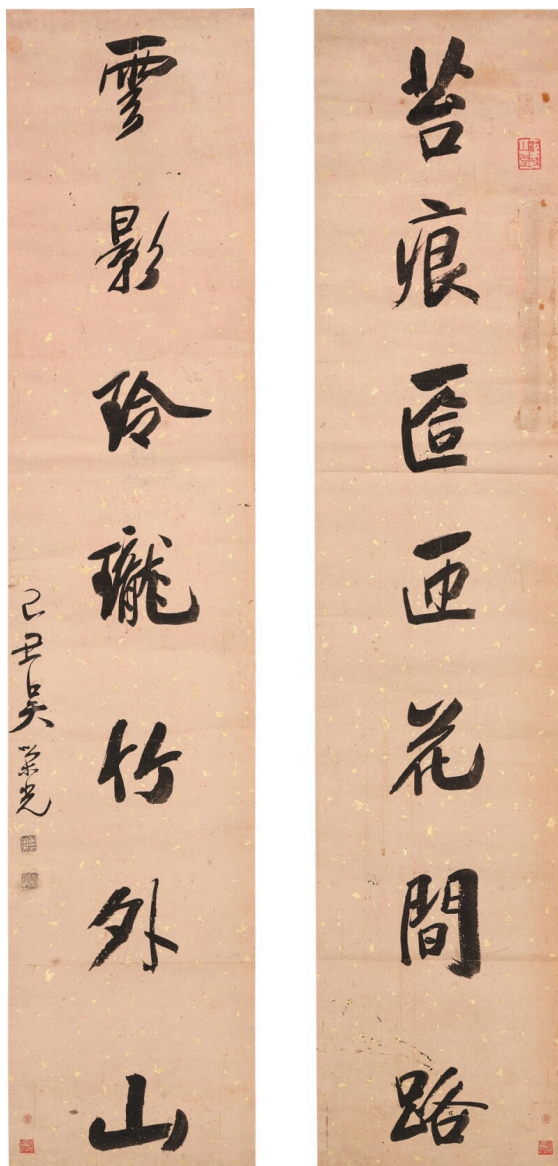 苔痕匼匝花間路
雲影玲瓏竹外山
己丑吳榮光